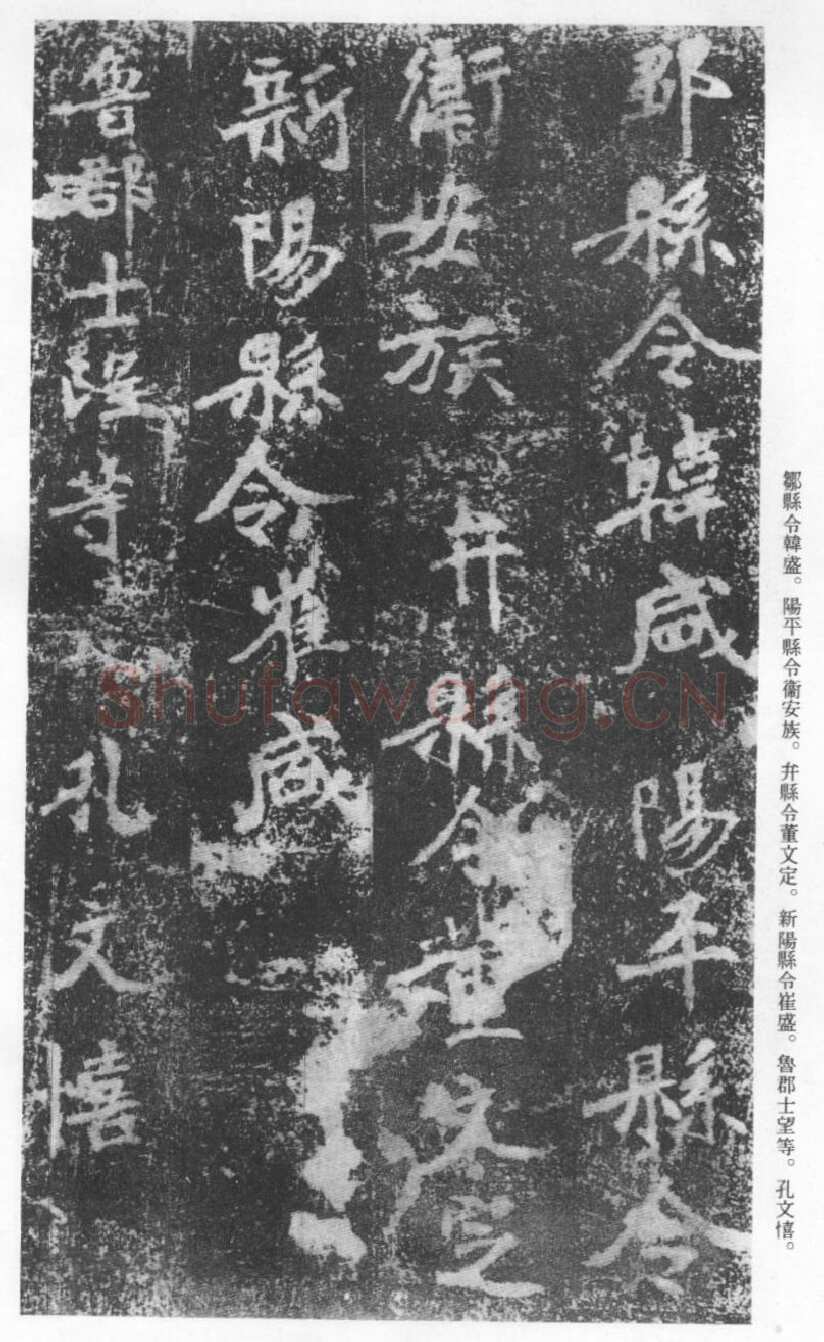 鄒縣令韓盛陽平縣令
衞安族弁縣令董文定
新陽縣令崔盛
魯郡士望等孔文憘
鄒縣令韓盛。陽平縣令衞安族。弁縣令董文定。新陽縣令崔盛。魯郡士望等。孔文憘。
Shufawang.CN